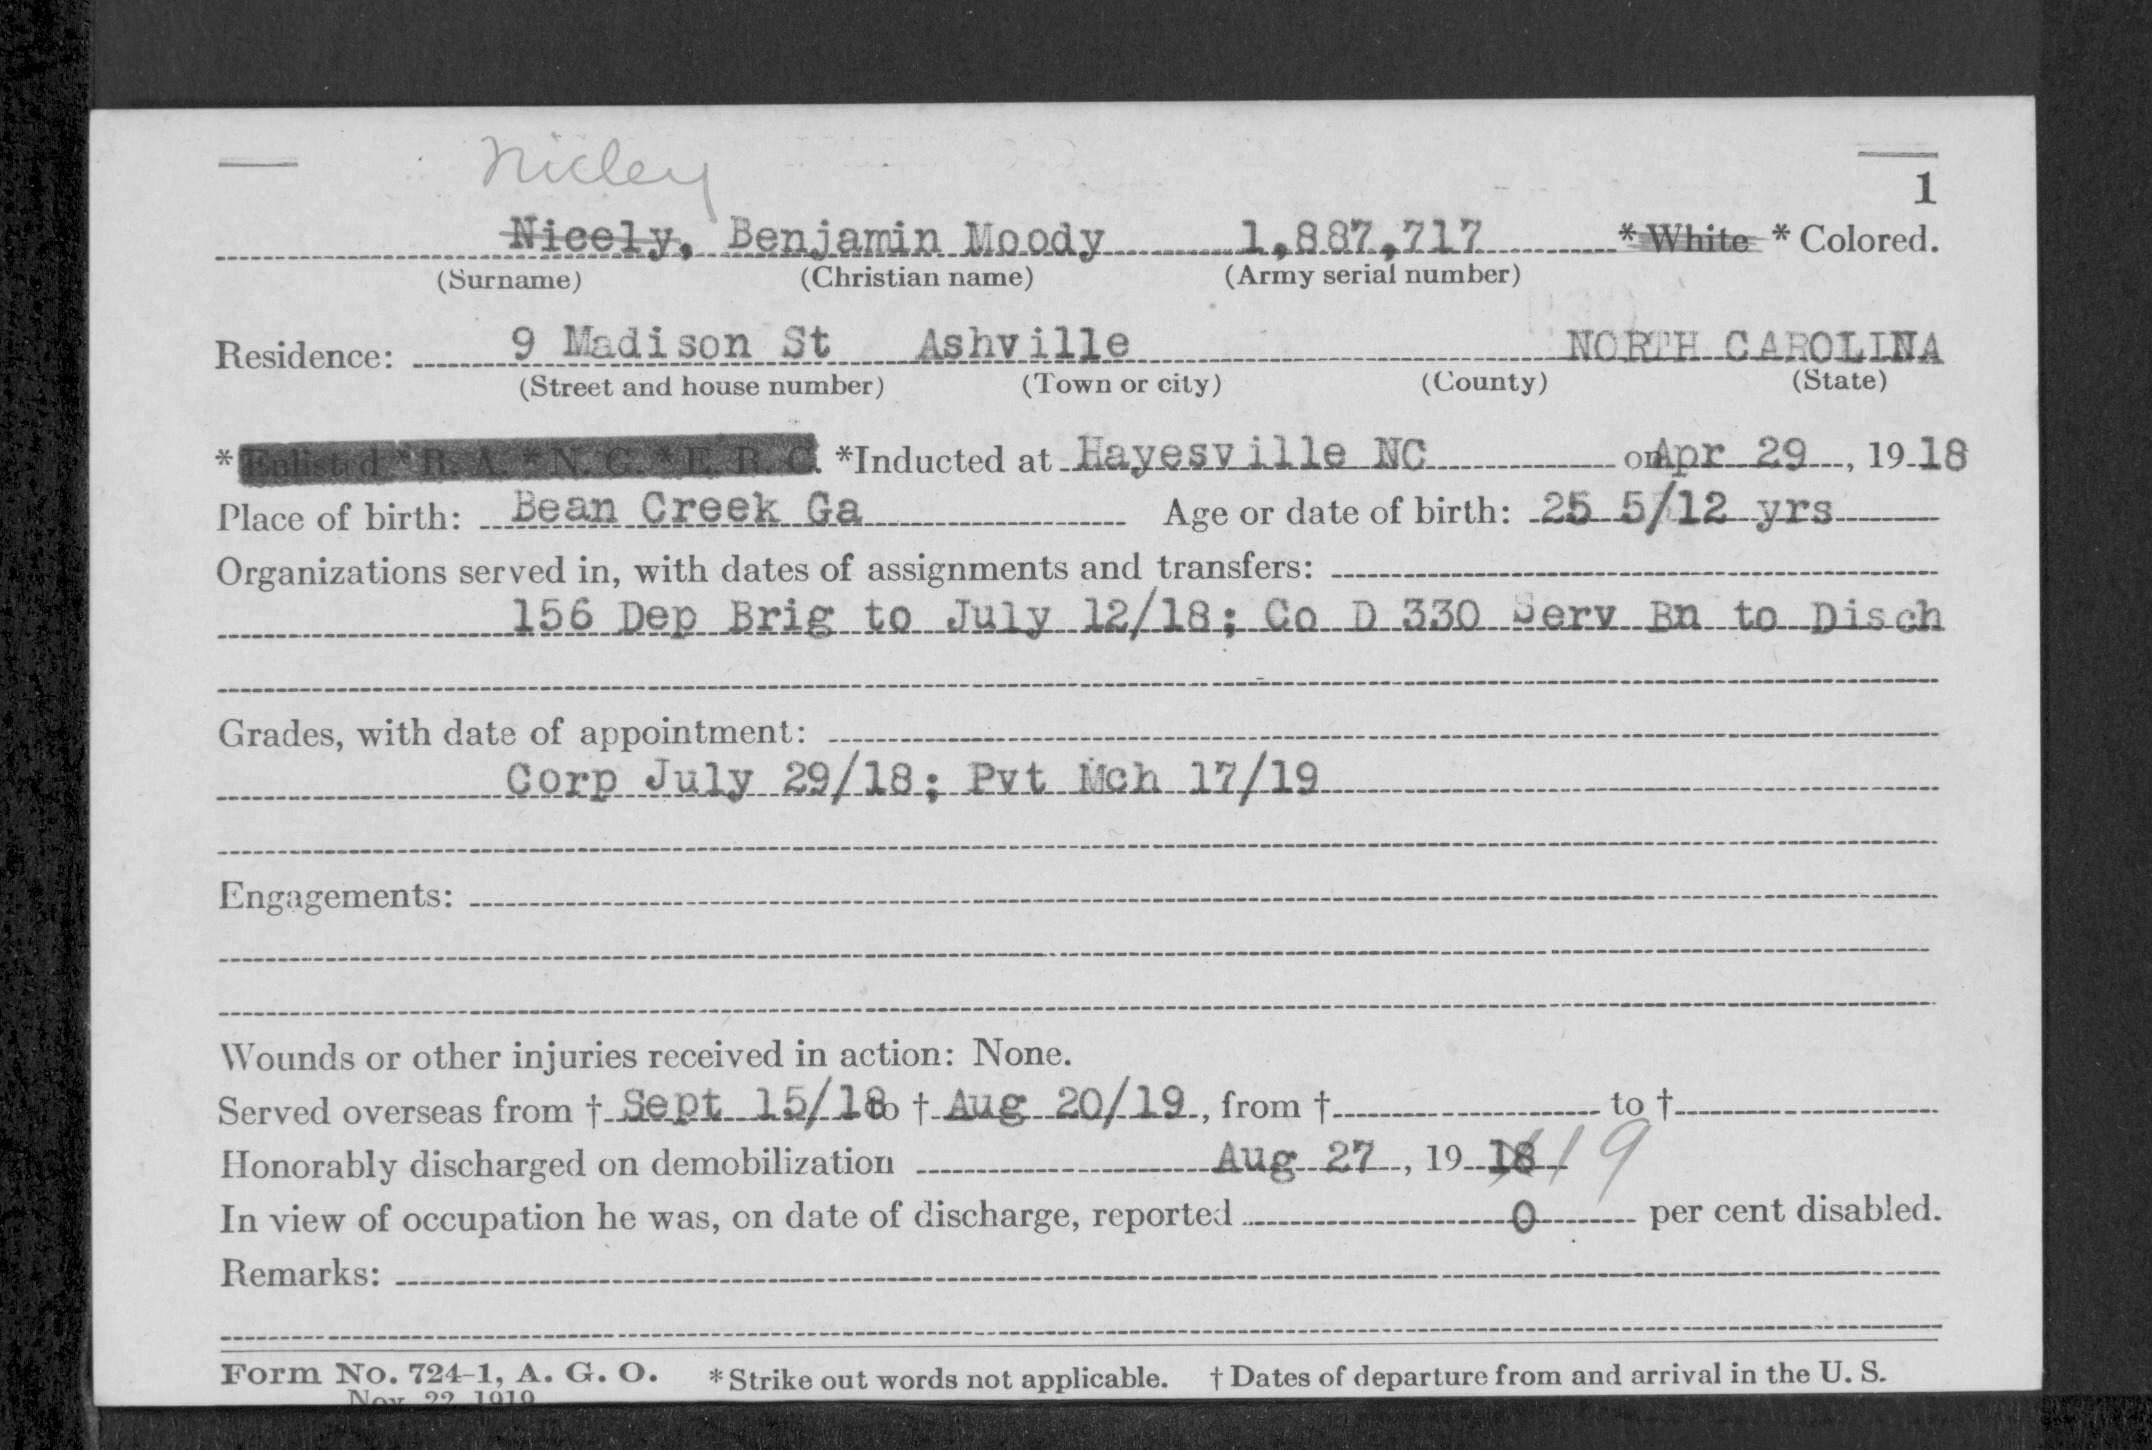 Nicley
1
Nicely, Benjamin Moody 1,887,717 * White * Colored.
(Surname) (Christian name) (Army serial number)
Residence: 9 Madison St Ashville NORTH CAROLINA
(Street and house number) (Town or city) (County) (State)
* Enlisted * R. A. * N. G. * E. R. C. *Inducted at Hayesville NC on Apr 29, 19 18
Place of birth: Bean Creek Ga Age or date of birth: 25 5/12 yrs
Organizations served in, with dates of assignments and transfers:
156 Dep Brig to July 12/18; Co D 330 Serv Bn to Disch
Grades, with date of appointment:
Corp July 29/18; Pvt Mch 17/19
Engagements:
Wounds or other injuries received in action: None.
Served overseas from † Sept 15/18 to † Aug 20/19, from † to †
Honorably discharged on demobilization Aug 27, 19 18 19
In view of occupation he was, on date of discharge, reported 0 per cent disabled.
Remarks:
Form No. 724-1, A. G. O. * Strike out words not applicable. † Dates of departure from and arrival in the U. S.
Nov. 22, 1919